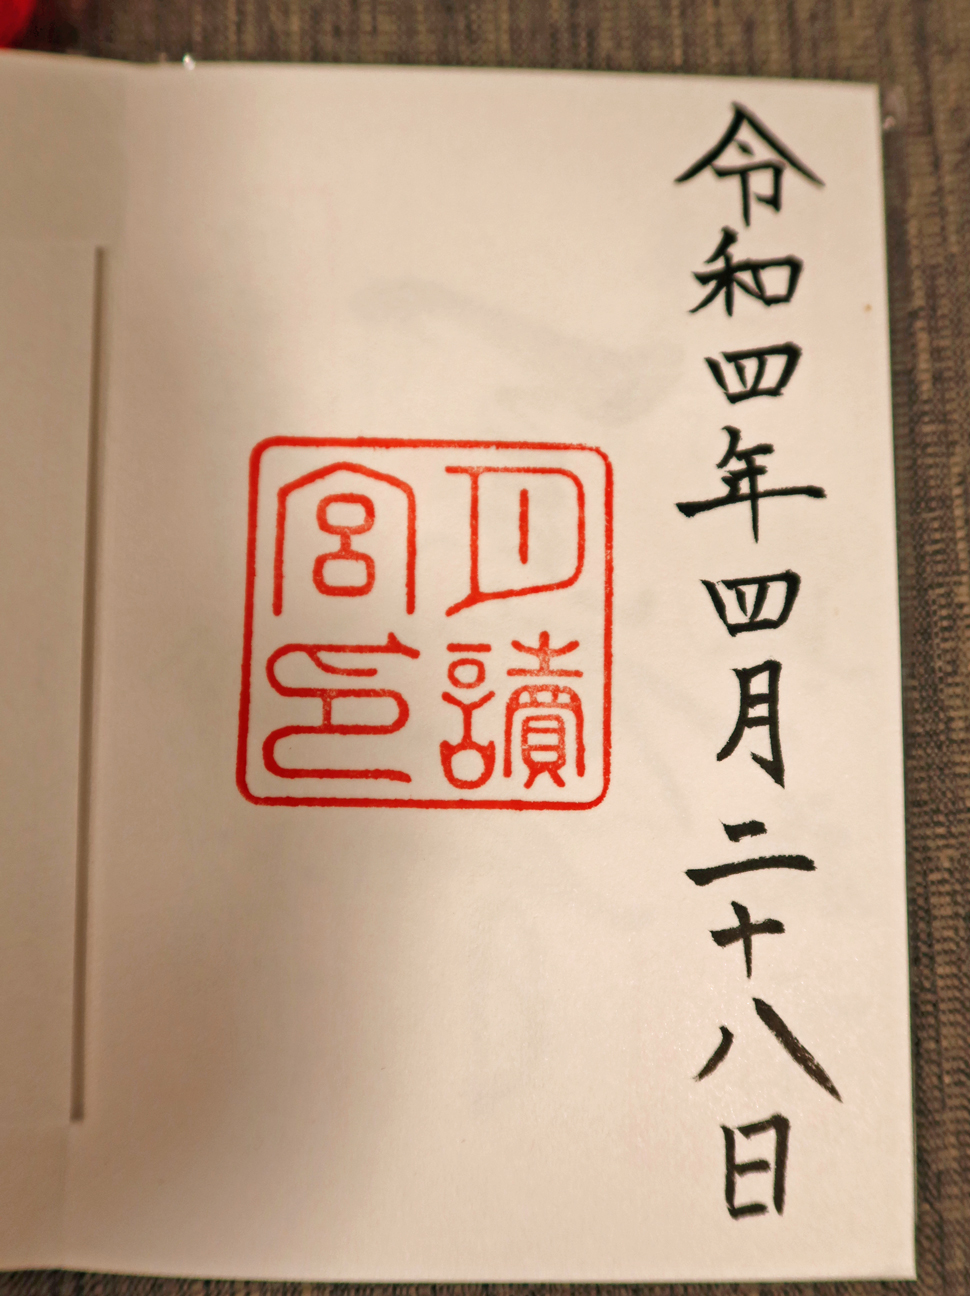 令和四年四月二十八日
月讀
宮印